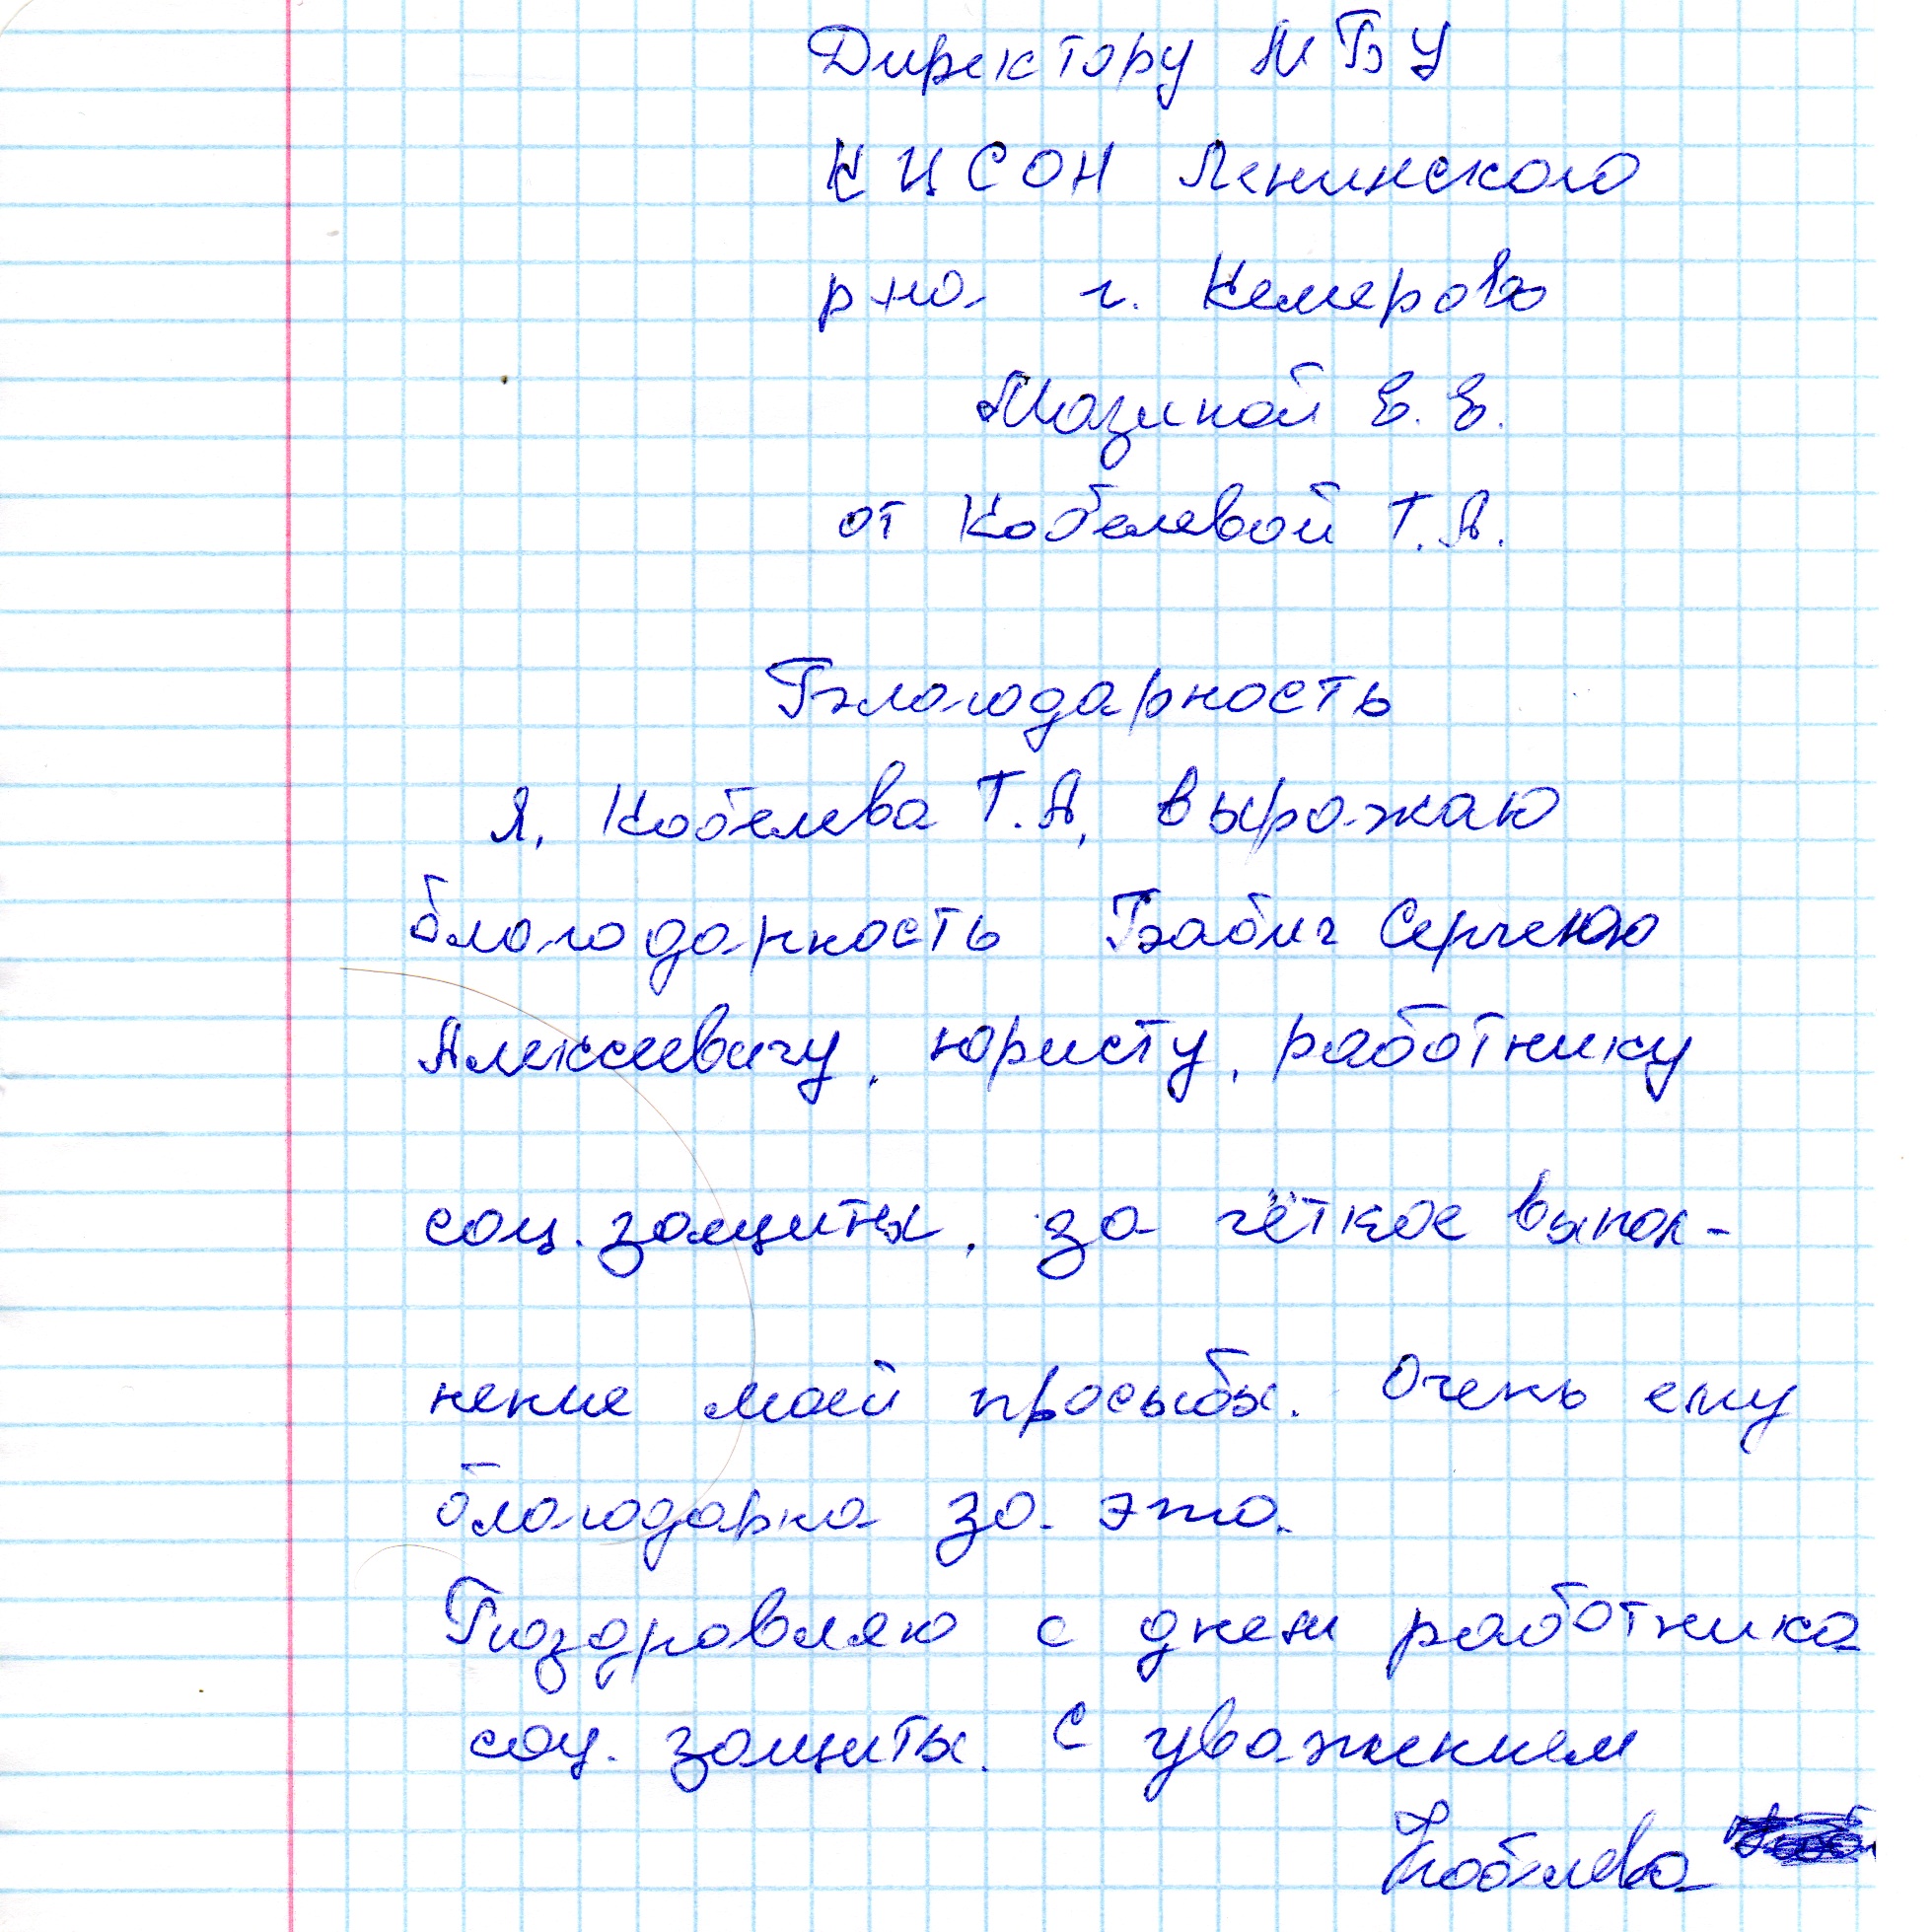 Директору МБУ
КЦСОН Ленинского
р-на г. Кемерово
Мазиной Е. Е.
от Кобелевой Т. А.
Благодарность
Я, Кобелева Т. А, выражаю
благодарность Бабич Сергею
Алексеевичу, юристу, работнику
соц. защиты, за чёткое выпол-
нение моей просьбы. Очень ему
благодарна за это.
Поздравляю с днем работника
соц. защиты. С уважением
Кобелева